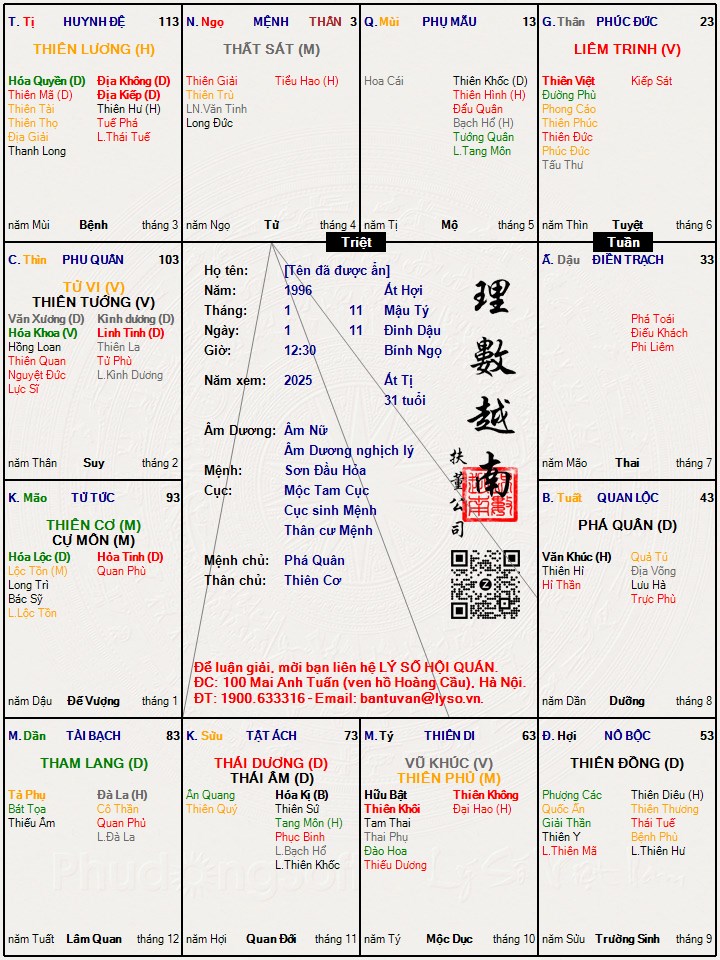 T. Tị HUYNH ĐỆ 113
THIÊN LƯƠNG (H)
Hóa Quyền (D) Địa Không (D)
Thiên Mã (D) Địa Kiếp (D)
Thiên Tài Thiên Hư (H)
Thiên Thọ Tuế Phá
Địa Giải L.Thái Tuế
Thanh Long
năm Mùi Bệnh tháng 3
N. Ngọ MỆNH THÂN 3
THẤT SÁT (M)
Thiên Giải Tiểu Hao (H)
Thiên Trù
LN.Văn Tinh
Long Đức
năm Ngọ Tử tháng 4
Q. Mùi PHỤ MẪU 13
Hoa Cái Thiên Khốc (D)
Thiên Hình (H)
Đẩu Quân
Bạch Hổ (H)
Tướng Quân
L.Tang Môn
năm Tị Mộ tháng 5
G. Thân PHÚC ĐỨC 23
LIÊM TRINH (V)
Thiên Việt Kiếp Sát
Đường Phù
Phong Cáo
Thiên Phúc
Thiên Đức
Phúc Đức
Tấu Thư
năm Thìn Tuyệt tháng 6
Triệt
Tuần
C. Thìn PHU QUÂN 103
TỬ VI (V)
THIÊN TƯỚNG (V)
Văn Xương (D) Kình dương (D)
Hóa Khoa (V) Linh Tinh (D)
Hồng Loan Thiên La
Thiên Quan Tử Phù
Nguyệt Đức L.Kình Dương
Lực Sĩ
năm Thân Suy tháng 2
Họ tên: [Tên đã được ẩn]
Năm: 1996 Ất Hợi
Tháng: 1 11 Mậu Tý
Ngày: 1 11 Đinh Dậu
Giờ: 12:30 Bính Ngọ
Năm xem: 2025 Ất Tị
31 tuổi
Âm Dương: Âm Nữ
Âm Dương nghịch lý
Mệnh: Sơn Đầu Hỏa
Cục: Mộc Tam Cục
Cục sinh Mệnh
Thân cư Mệnh
Mệnh chủ: Phá Quân
Thân chủ: Thiên Cơ
理數越南
扶董公司
Để luận giải, mời bạn liên hệ LÝ SỐ HỘI QUÁN.
ĐC: 100 Mai Anh Tuấn (ven hồ Hoàng Cầu), Hà Nội.
ĐT: 1900.633316 - Email: bantuvan@lyso.vn.
Ấ. Dậu ĐIỀN TRẠCH 33
Phá Toái
Điếu Khách
Phi Liêm
năm Mão Thai tháng 7
K. Mão TỬ TỨC 93
THIÊN CƠ (M)
CỰ MÔN (M)
Hóa Lộc (D) Hỏa Tinh (D)
Lộc Tồn (M) Quan Phù
Long Trì
Bác Sỹ
L.Lộc Tồn
năm Dậu Đế Vượng tháng 1
B. Tuất QUAN LỘC 43
PHÁ QUÂN (D)
Văn Khúc (H) Quả Tú
Thiên Hỉ Địa Võng
Hỉ Thần Lưu Hà
Trực Phù
năm Dần Dưỡng tháng 8
M. Dần TÀI BẠCH 83
THAM LANG (D)
Tả Phụ Đà La (H)
Bát Tọa Cô Thần
Thiếu Âm Quan Phủ
L.Đà La
năm Tuất Lâm Quan tháng 12
K. Sửu TẬT ÁCH 73
THÁI DƯƠNG (D)
THÁI ÂM (D)
Ân Quang Hóa Kị (B)
Thiên Quý Thiên Sứ
Tang Môn (H)
Phục Binh
L.Bạch Hổ
L.Thiên Khốc
năm Hợi Quan Đới tháng 11
M. Tý THIÊN DI 63
VŨ KHÚC (V)
THIÊN PHỦ (M)
Hữu Bật Thiên Không
Thiên Khôi Đại Hao (H)
Tam Thai
Thai Phụ
Đào Hoa
Thiếu Dương
năm Tý Mộc Dục tháng 10
Đ. Hợi NÔ BỘC 53
THIÊN ĐỒNG (D)
Phượng Các Thiên Diêu (H)
Quốc Ấn Thiên Thương
Giải Thần Thái Tuế
Thiên Y Bệnh Phù
L.Thiên Mã L.Thiên Hư
năm Sửu Trường Sinh tháng 9